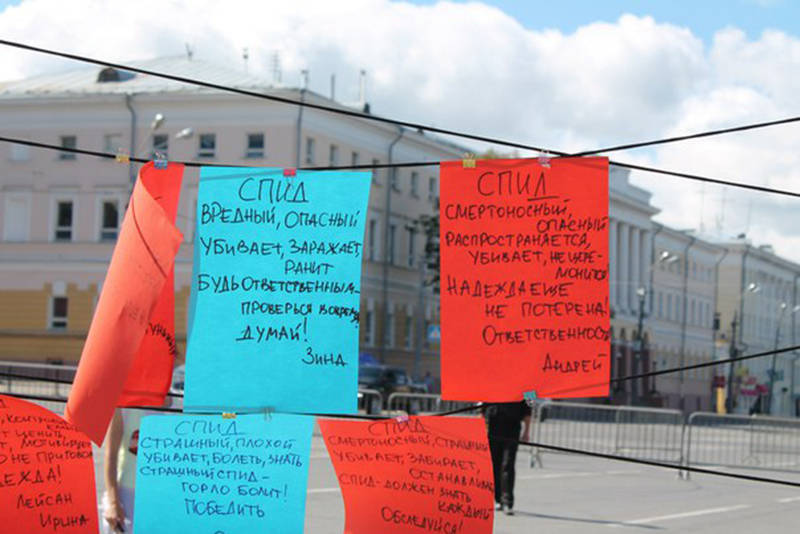 СПИД
ВРЕДНЫЙ, ОПАСНЫЙ
УБИВАЕТ, ЗАРАЖАЕТ,
РАНИТ
БУДЬ ОТВЕТСТВЕННЫМ-
ПРОВЕРЬСЯ ВОВРЕМЯ
ДУМАЙ!
ЗИНА
СПИД
СМЕРТОНОСНЫЙ,
ОПАСНЫЙ
РАСПРОСТРАНЯЕТСЯ,
УБИВАЕТ, НЕ ЦЕРЕ-
МОНИТСЯ
НАДЕЖДА ЕЩЕ
НЕ ПОТЕРЕНА!
ОТВЕТСТВЕННОСТЬ
АНДРЕЙ
ЦЕНИТЬ,
МОТИВИРУЕТ
НЕ ПРИГОВОР
ЛЕЙСАН
ИРИНА
СПИД
СТРАШНЫЙ, ПЛОХОЙ
УБИВАЕТ, БОЛЕТЬ, ЗНАТЬ
СТРАШНЫЙ СПИД-
ГОРЛО БОЛИТ!
ПОБЕДИТЬ
СПИД
СМЕРТОНОСНЫЙ, СТРАШНЫЙ
УБИВАЕТ, ЗАБИРАЕТ,
ОСТАНАВЛИВ
СПИД-ДОЛЖЕН ЗНАТЬ
КАЖДЫЙ
ОБСЛЕДУЙСЯ!